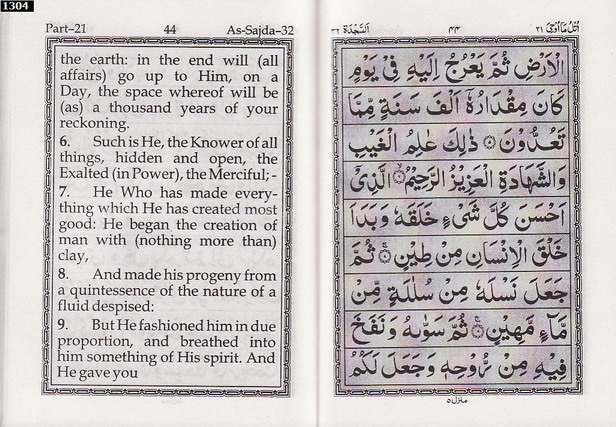 1304
Part-21 44 As-Sajda-32
the earth: in the end will (all
affairs) go up to Him, on a
Day, the space whereof will be
(as) a thousand years of your
reckoning.
6. Such is He, the Knower of all
things, hidden and open, the
Exalted (in Power), the Merciful;-
7. He Who has made every-
thing which He has created most
good: He began the creation of
man with (nothing more than)
clay,
8. And made his progeny from
a quintessence of the nature of a
fluid despised:
9. But He fashioned him in due
proportion, and breathed into
him something of His spirit. And
He gave you
اُتْلُ مَآ اُوْحِیَ ٢١ ٤٤ اَلسَّجْدَة ٣٢
الْاَرْضِ ثُمَّ یَعْرُجُ اِلَیْهِ فِیْ یَوْمٍ
كَانَ مِقْدَارُهٗۤ اَلْفَ سَنَةٍ مِّمَّا
تَعُدُّوْنَ ۝ ذٰلِكَ عٰلِمُ الْغَیْبِ
وَالشَّهَادَةِ الْعَزِیْزُ الرَّحِیْمُ ۝ الَّذِیْۤ
اَحْسَنَ كُلَّ شَیْءٍ خَلَقَهٗ وَبَدَاَ
خَلْقَ الْاِنْسَانِ مِنْ طِیْنٍ ۝ ثُمَّ
جَعَلَ نَسْلَهٗ مِنْ سُلٰلَةٍ مِّنْ
مَّآءٍ مَّهِیْنٍ ۝ ثُمَّ سَوّٰىهُ وَنَفَخَ
فِیْهِ مِنْ رُّوْحِهٖ وَجَعَلَ لَكُمُ
منزل ٥